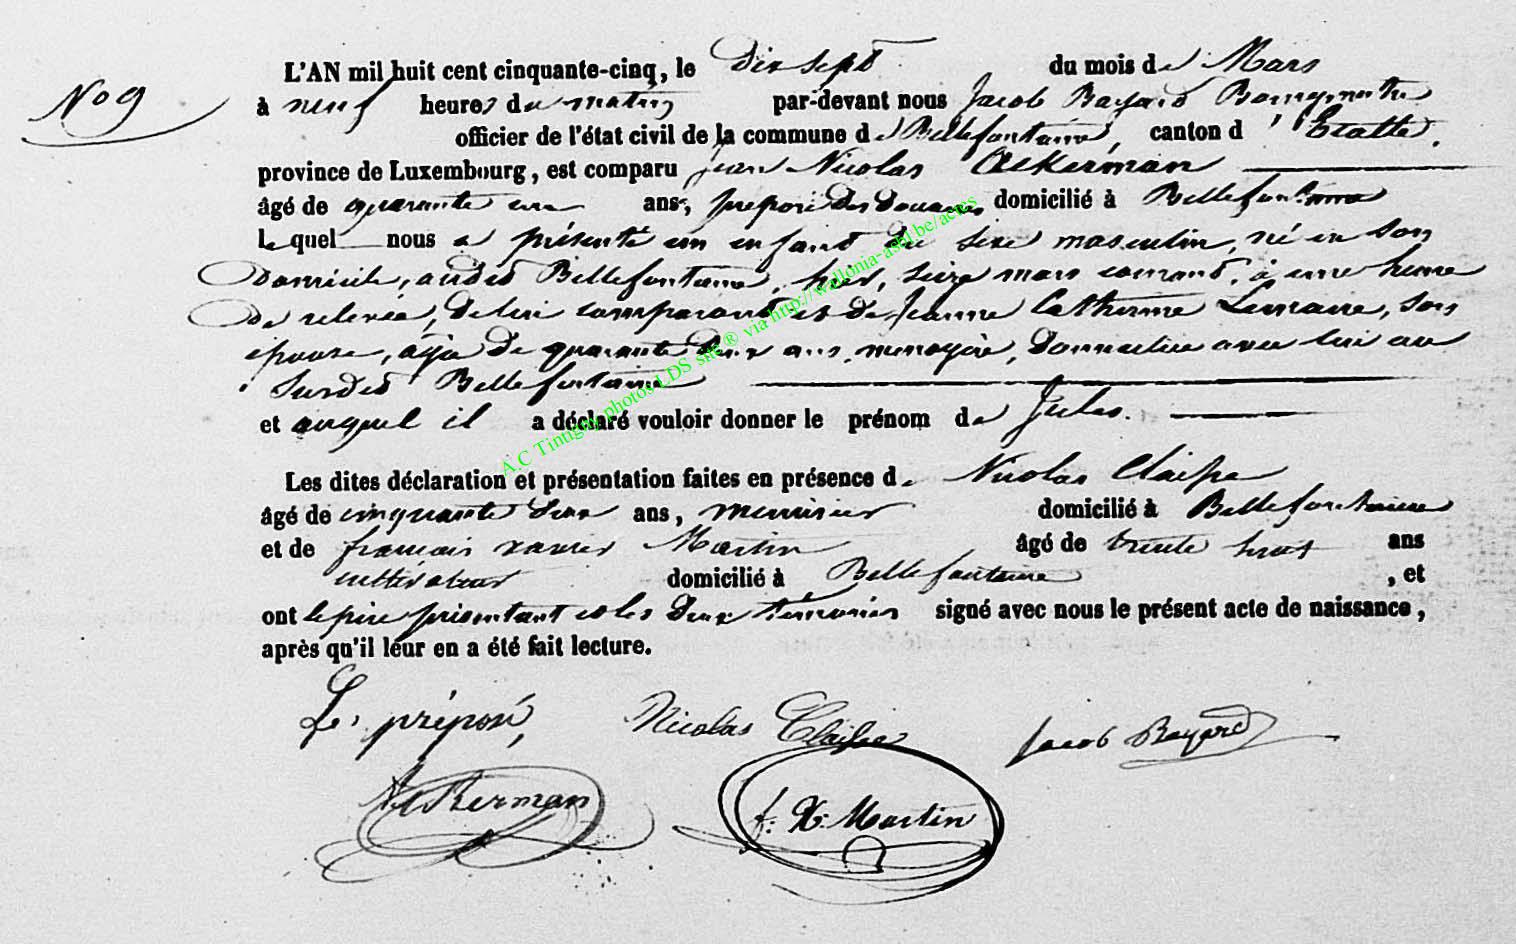 No 9
L'AN mil huit cent cinquante-cinq, le dix sept du mois de Mars
à neuf heures du matin par-devant nous Jacob Bayard Bourgmestre
officier de l'état civil de la commune de Bellefontaine, canton d'Etalle,
province de Luxembourg, est comparu Jean Nicolas Ackerman
âgé de quarante un ans, préposé des douanes domicilié à Bellefontaine
lequel nous a présenté un enfant du sexe masculin, né en son
domicile, audit Bellefontaine, hier, seize mars courant, à une heure
de relevée, de lui comparant et de Jeanne Catherine Lemaire, son
épouse, âgée de quarante deux ans, menagère, domiciliée avec lui au
susdit Bellefontaine
et auquel il a déclaré vouloir donner le prénom de Jules.
Les dites déclaration et présentation faites en présence de Nicolas Claisse
âgé de cinquante deux ans, menuisier domicilié à Bellefontaine
et de françois xavier Martin âgé de trente huit ans
cultivateur domicilié à Bellefontaine, et
ont le père présentant et les deux témoins signé avec nous le présent acte de naissance,
après qu'il leur en a été fait lecture.
Le préposé, Nicolas Claisse Jacob Bayard
Ackerman f: X: Martin
A.C Tintigny photos LDS site® via http://wallonia-asbl.be/actes